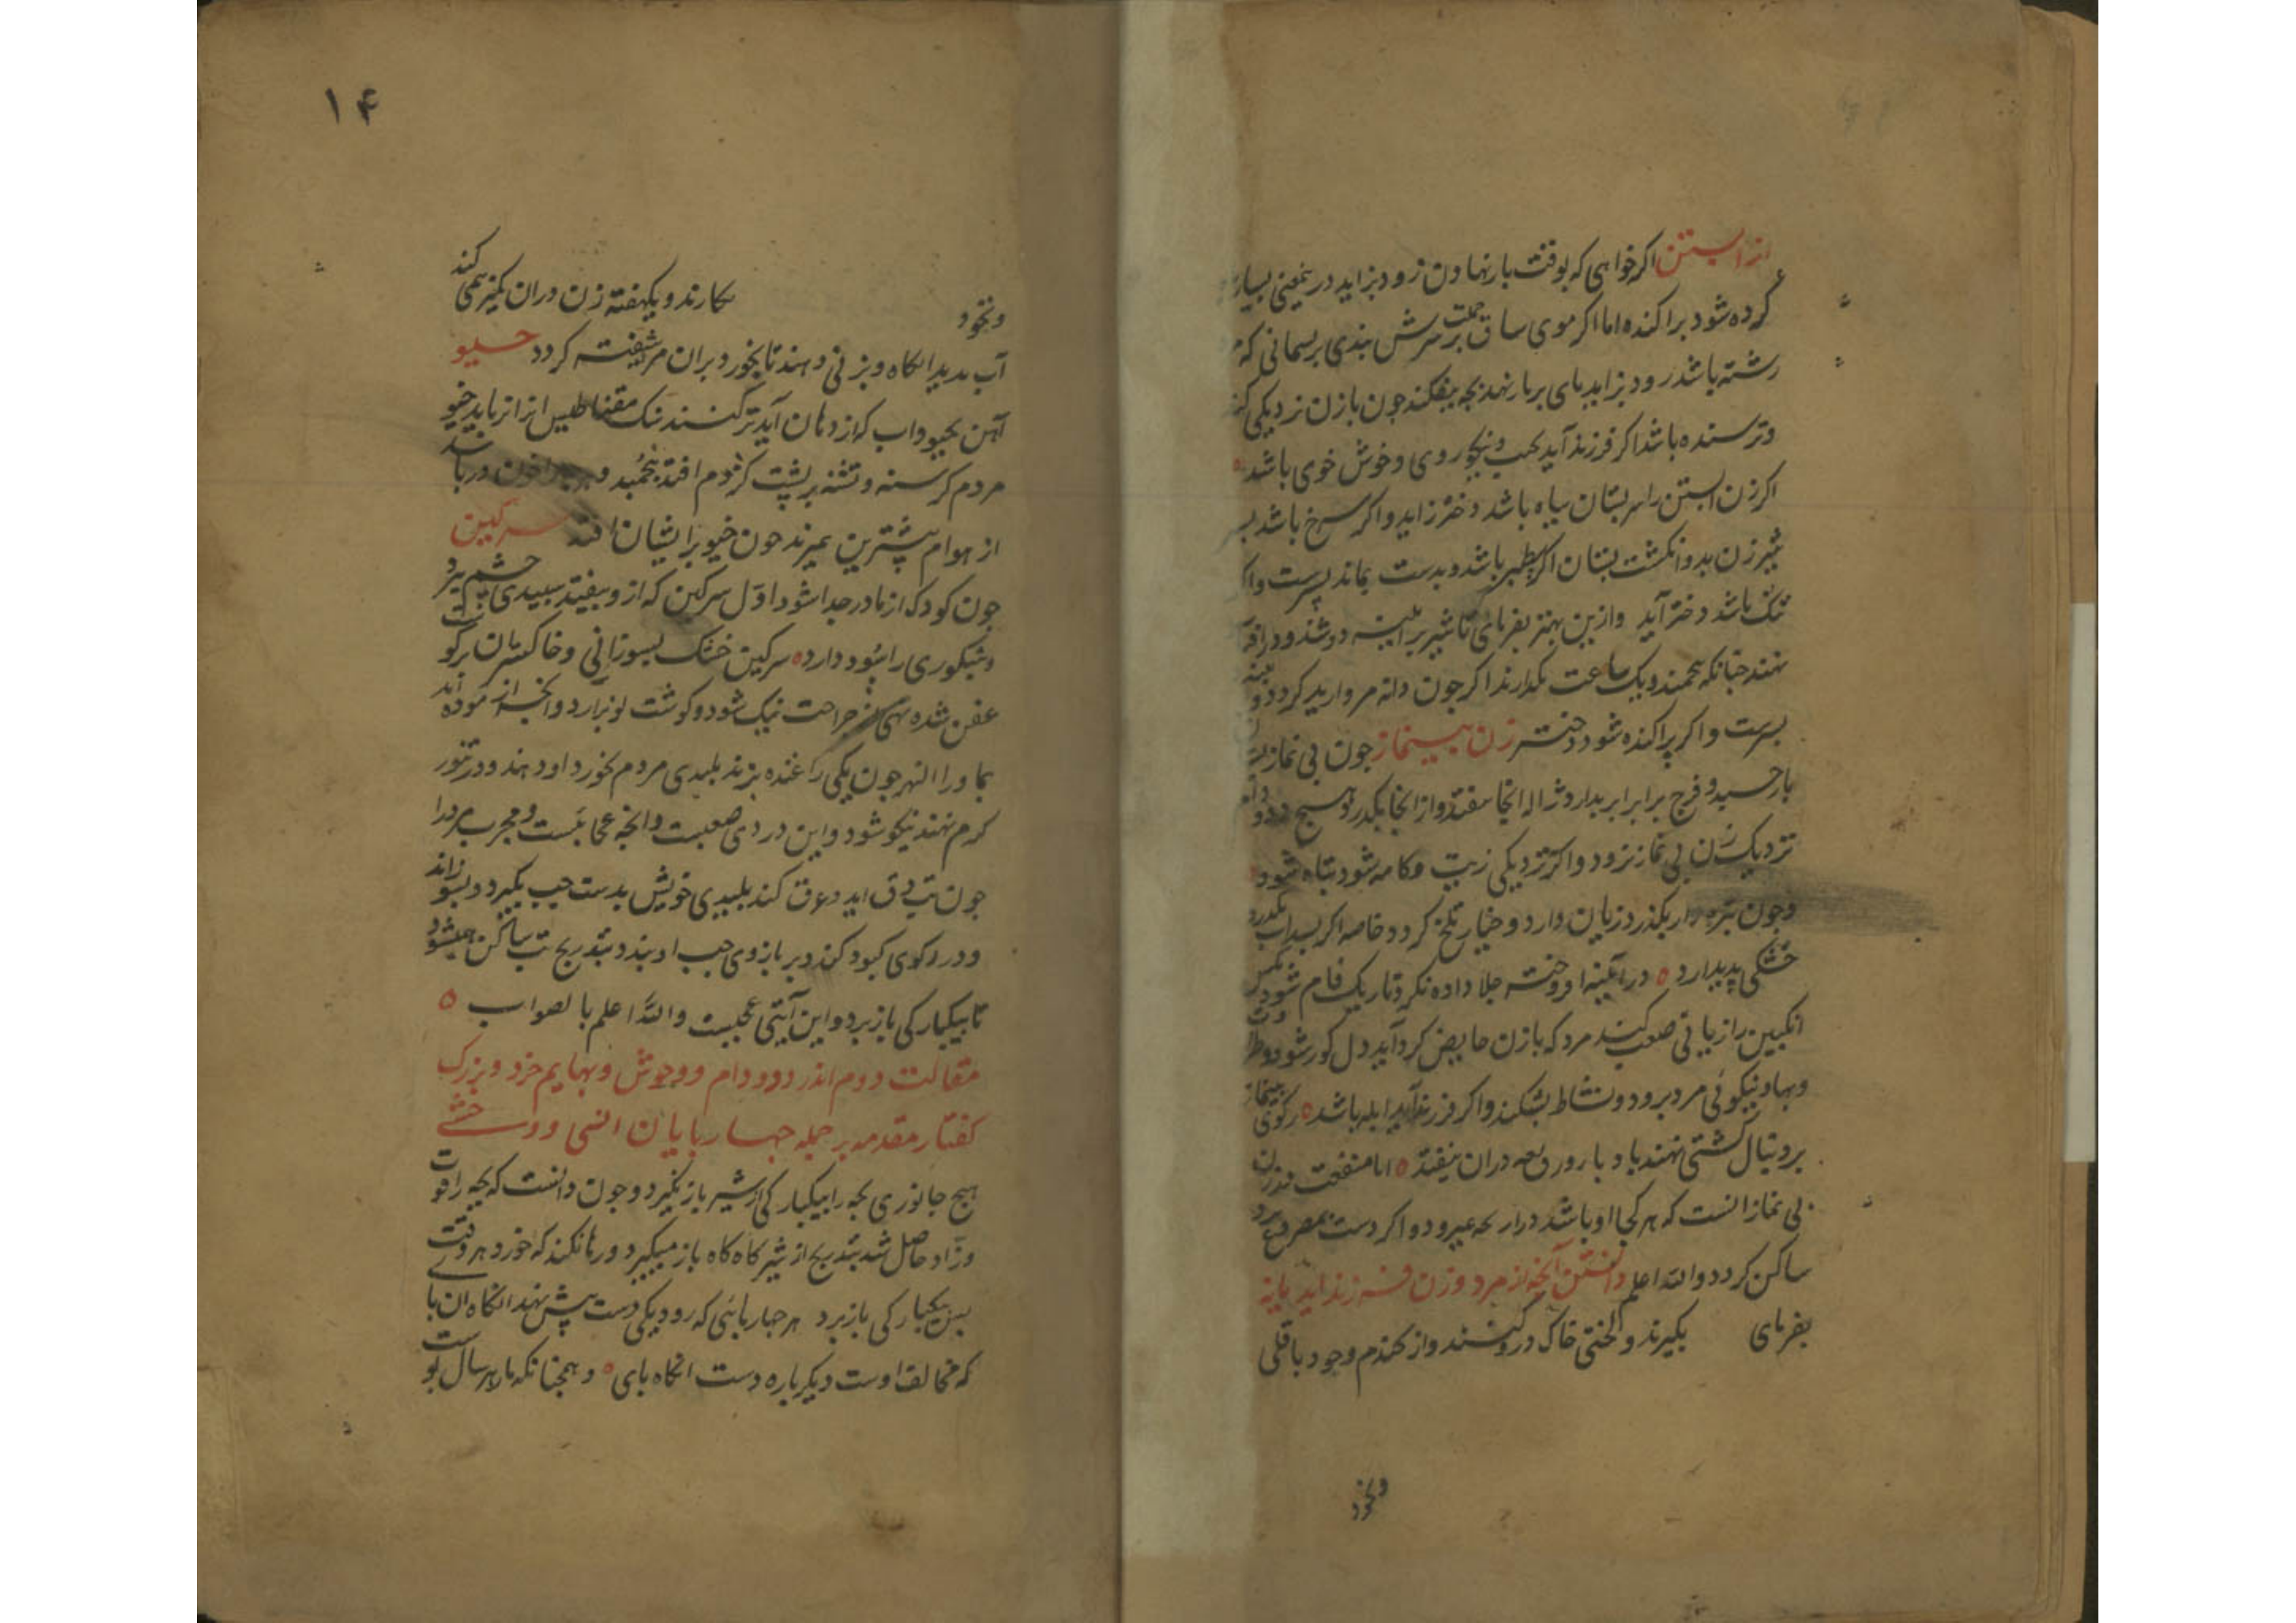 از ابستن اکر خواهی که بوقت بار نهادن زود بزاید درین معنی بسیار
کرده شود براکنده اما اکر موی ساق جفت بر سرش بندی بریسمانی که
رشته باشد زود بزاید بای بر مار نهد بجه بیفکند جون با زن نزدیکی کند
وترسنده باشد اکر فرزند آید نجیب ونیکو روی وخوش خوی باشد
اکر زن ابستن را سر بستان سیاه باشد دختر زاید واکر سرخ باشد بسر
شیر زن بدو انکشت بستان اکر سطبر باشد وبدست بماند بسرست واکر
تنک باشد دختر آید وازین بهتر بفرمای تا شیر بر آینه دوشند ودر آفتاب
نهند جنانکه نجنبد ویک ساعت بکذارند اکر جون دانه مروارید کردد
بسرست واکر براکنده شود دختر زن بینماز جون بی نماز
باز خسبد وفرج برابر ابر بدارد ژاله آنجا نیفتد واز انجا بکذرد وهیج دد ودام
نزدیک زن بی نماز نرود واکر نزدیکی زیت وکامه شود تباه شود
وجون بتره زار بکذرد زیان دارد وخیار تلخ کردد خاصه اکر بسداب بکذرد
خشکی بدید آرد در آینه افروخته جلا داده نکرد تاریک فام شود
انکبین را زیانی صعب کند مرد که با زن حایض کرد آید دل کور شود
وبها ونیکوئی مرد برود ونشاط بشکند واکر فرزند آید ابله باشد رکوی بینماز
بر دنبال کشتی نهند باد باروری بعد دران نیفتد اما منفعت
بی نماز انست که هر کجا او باشد واکر دست بمصروع برد
ساکن کردد والله اعلم دانستن آنجه از مرد وزن فرزند آید یا نه
بفرمای بکیرند ولختی خاک درو کنند واز کندم وجو وباقلی
ونخود
۱۴
ونخود بکارند ویکهفته زن دران کمیز همی کند
آب بدید انکاه وبزنی دهند تا بخورد بران مرد شیفته کردد خیو
آهن بخیو واب که از دهان آید تر کنند سنک مقناطیس انرا نرباید خیو
مردم کرسنه وتشنه بر بشت کژدم افتد نجنبد
از هوام بیشترین بمیرند جون خیو بر ایشان افتد سرکین
جون کودک از مادر جدا شود اول سرکین که ازو بیفتد سبیدی چشم ببرد
وشبکوری را سود دارد سرکین خشک بسوزانی وخاکستران برکوشت
عفن شده نهی جراحت نیک شود وکوشت نو برآرد وانجه ازموده اند
بما ورا النهر جون یکی را غنده بزند بلیدی مردم بخورد او دهند ودر تنور
کرم نهند نیکو شود واین دردی صعبست وانجه عجایبست ومجرب مرد را
جون تب دق اید وعرق کند بلیدی خویش بدست جب بکیرد وبسوزاند
ودر رکوی کبود کند وبر بازوی جب او بندد بتدریج تب ساکن میشود
تا بیکبارکی باز برد واین آیتی عجبست والله اعلم بالصواب
مقالت دوم اندر دد ودام ووحوش وبهایم خرد وبزرک
کفتار مقدمه بر جمله جهاربایان انسی ووحشی
هیج جانوری بجه را بیکبارکی از شیر باز نکیرد وجون دانست که بجه را قوت
وزاد حاصل شد بتدریج از شیر کاه کاه باز میکیرد ورها نکند که خورد هر وقت
بس یکبارکی باز برد هر جهاربائی که رود یکی دست بیش نهد انکاه ان بای
که مخالف اوست دیکرباره دست انکاه بای وهمجنانکه مار هر سال بوست